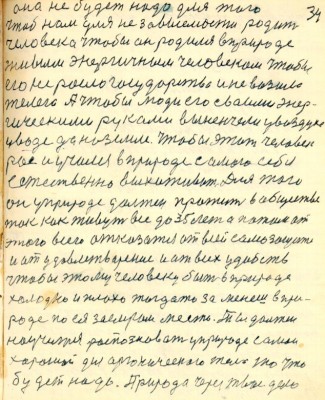 она не будет надо для того 34
чтоб нам для не зависемости родит
человека чтобы он родился в природе
живым энергичным человеком чтобы
его не росло государство и не возило
тело его А чтобы люди его своими энер-
гическими руками вынчали у воздухе
у воде у до земле. Чтобы этот человек
рос и учился в природе самого себя
естественно выхаживать. Для того
он у природе должен прожить в обществе
так как живут все до 35 лет а потом от
этого всего отказатся от всей самозащите
и от удовлетворение и от всех удобств
чтобы этому человеку быть в природе
холодно и плохо тогда то за имеш в при-
роде по ся заемром место. Ты должен
научится распозновать у природе самой
хорошой для органического тела то что
будет надо. Природа через твое дело